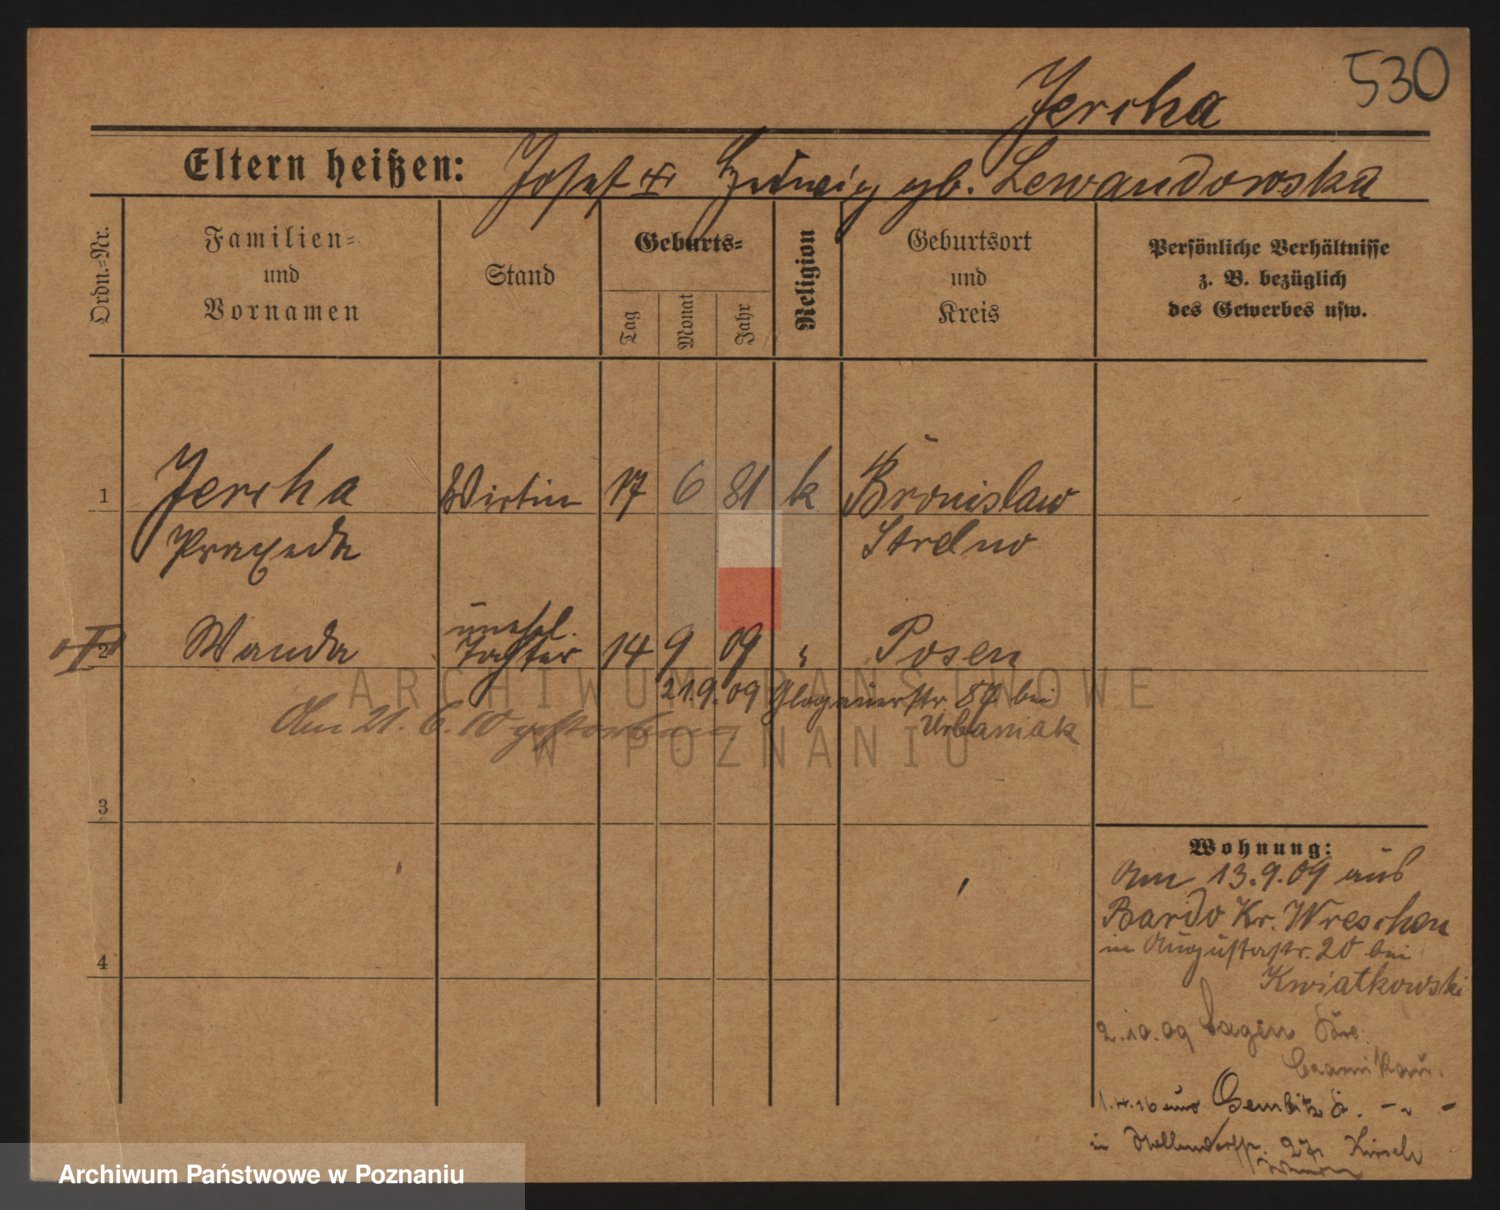 530
Jercha
Eltern heißen: Josef + Hedwig gb. Lewandowska
Ordn.-Nr.
Familien- und Vornamen
Stand
Geburts-
Tag
Monat
Jahr
Religion
Geburtsort und Kreis
Persönliche Verhältnisse z. B. bezüglich des Gewerbes usw.
1 Jercha Wirtin 17 6 81 k Bronislaw
Praxeda Strelno
unehel.
2 Wanda Tochter 14 9 09 " Posen
21.9.09 Glogauerstr. 87 bei
Urbaniak
Am 21. 6. 10 gestorben
ARCHIWUM PAŃSTWOWE
W POZNANIU
3
4
Wohnung:
Am 13.9.09 aus
Bardo Kr. Wreschen
in Augustastr. 20 bei
Kwiatkowski
2.10.09
Czarnikau.
aus Gembitz
in 27 Kirsch
Archiwum Państwowe w Poznaniu